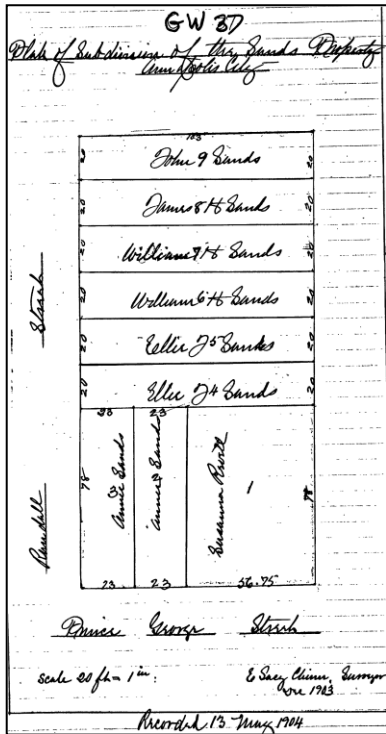 GW 37
Plat of Subdivision of the Sands Property
Annapolis City
103
20 John 9 Sands 20
20 James 8 H Sands 20
20 William 7 H Sands 20
20 William 6 H Sands 20
20 Ellie J 5 Sands 20
20 Ellie J 4 Sands 20
Randall Street
23 23
78 Annie 3 Sands
Annie 2 Sands
Susanna 1 78
23 23 56.75
Prince George Street
Scale 20 ft = 1 in.
Surveyor
1903
Recorded 13 May 1904